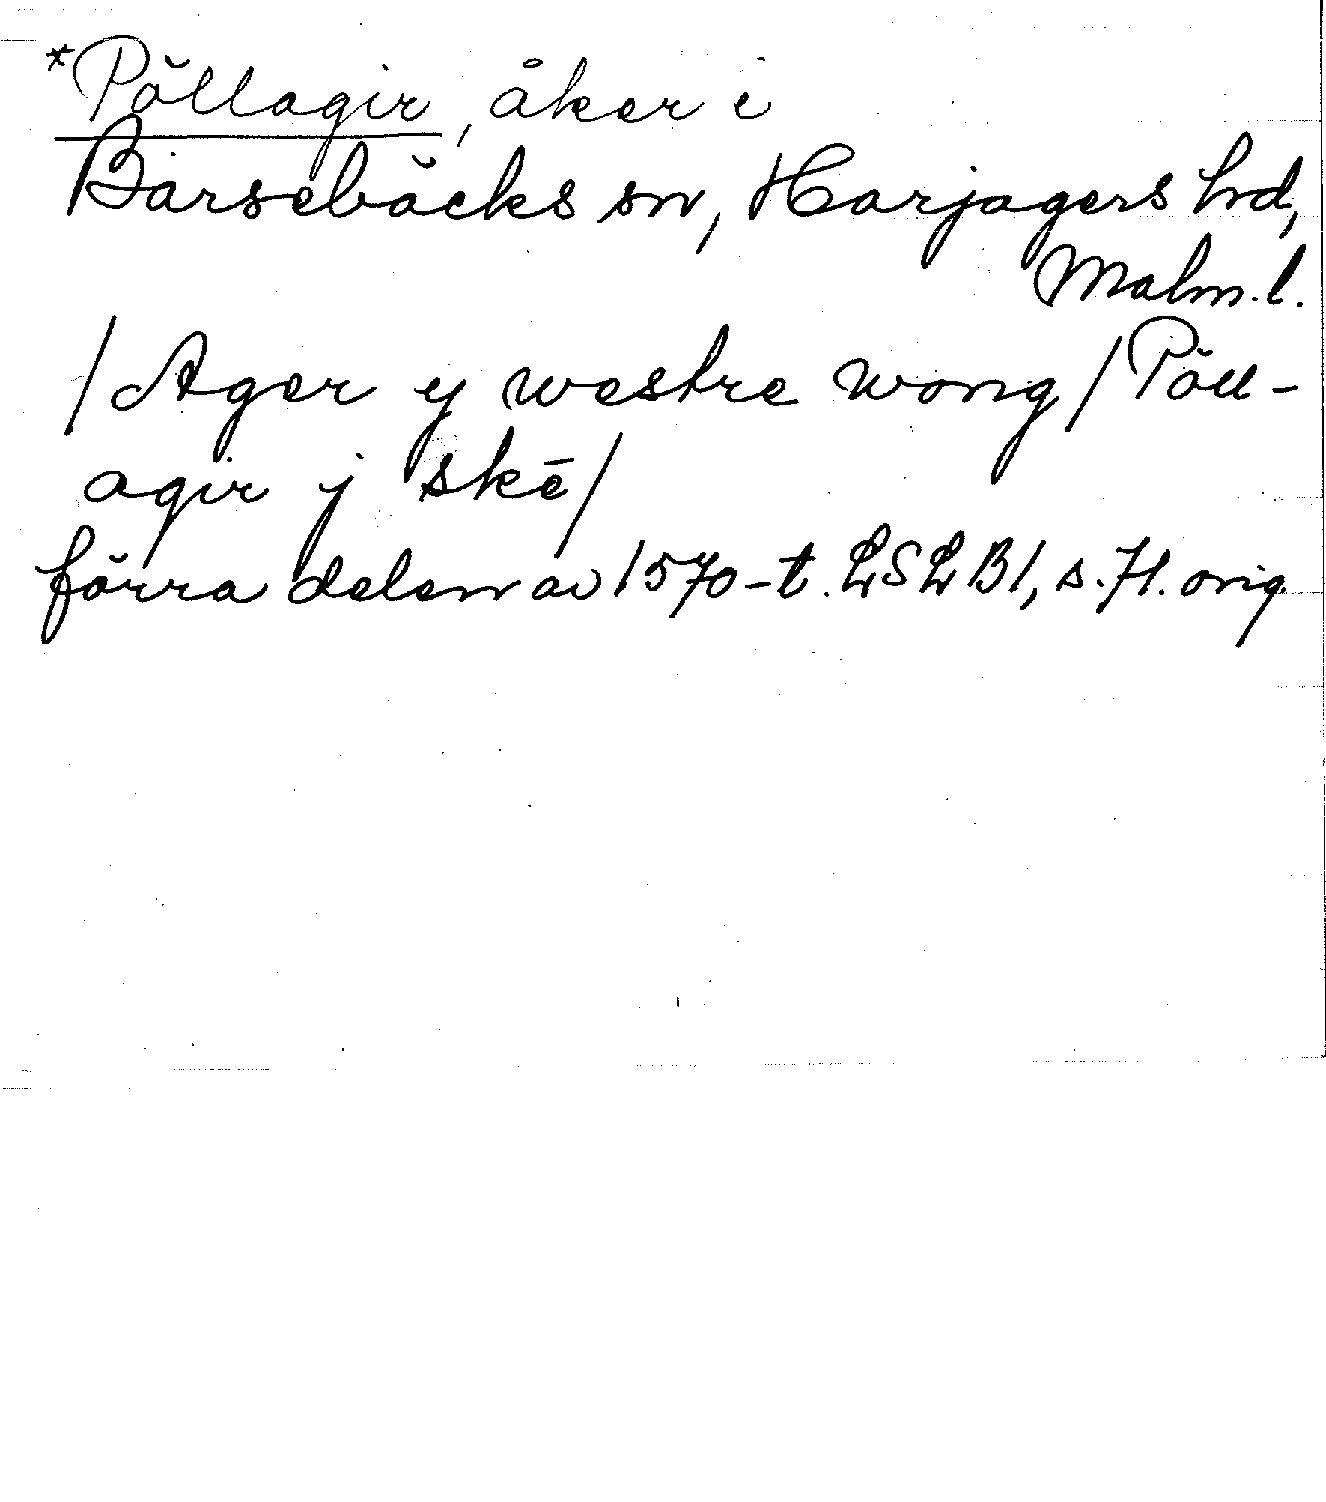 *Pöllagir, åker i
Barsebäcks sn, Harjagers hd,
Malm. l.
/Ager y westre wong/Pöll-
agir j skē/
förra delen av 1570-t. LSLB1, s. 71. orig.